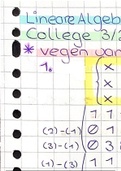 Lineare Algeb
College 3/2
* vegen van
1. { x
x
x
1 1
(2)-(1) 0 1
(3)-(1) 0 3
(1)-(3) 1 1